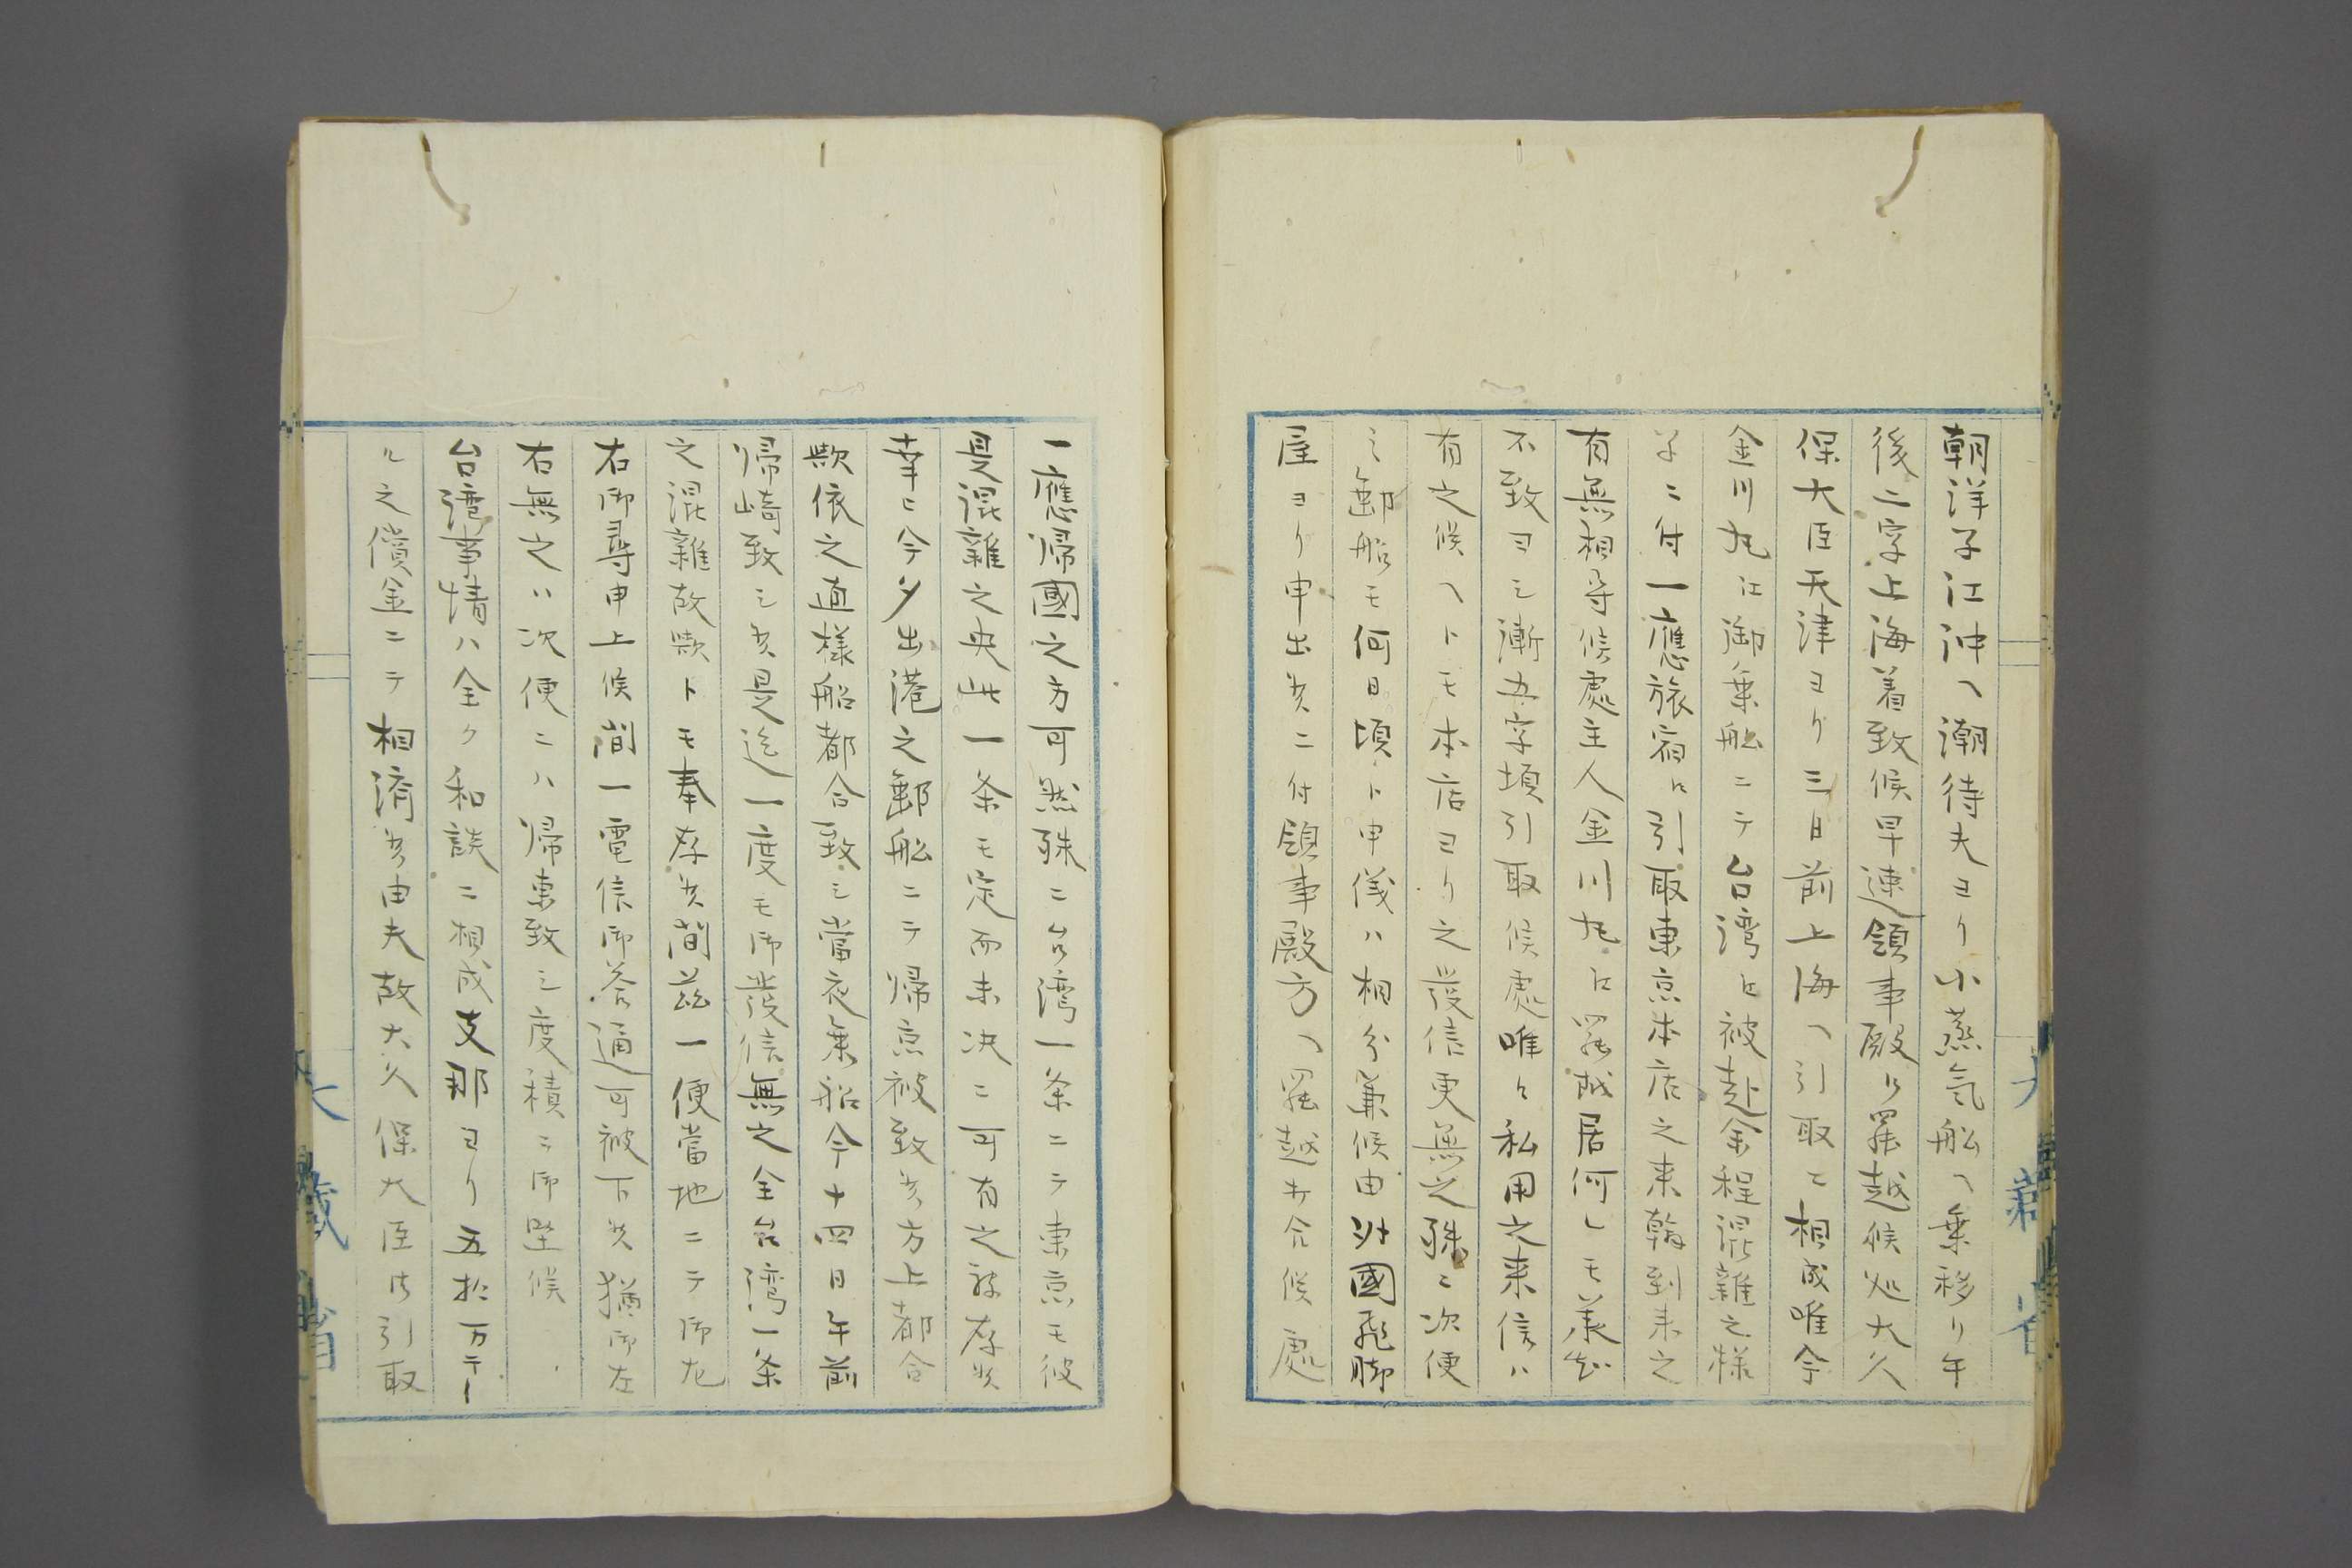 朝洋子江沖ヘ潮待夫ヨリ小蒸気船ヘ乗移リ午
後二字上海着致候早速領事殿江罷越候処大久
保大臣天津ヨリ三日前上海ヘ引取ニ相成唯今
金川丸江御乗船ニテ台湾江被赴余程混雑之様
子ニ付一應旅宿江引取東京本店之来翰到来之
有無相尋候處主人金川丸江罷越居何レモ承知
不致ヨシ漸五字頃引取候處唯々私用之来信ハ
有之候ヘトモ本店ヨリ之發信更無之殊ニ次便
之郵船モ何日頃ト申儀ハ相分兼候由外國飛脚
屋ヨリ申出候ニ付領事殿方ヘ罷越打合候處
一應帰國之方可然殊ニ台湾一条ニテ東京モ彼
是混雑之央此一条モ定而未决ニ可有之被存候
幸ヒ今夕出港之郵船ニテ帰京被致候方上都合
歟依之直様船都合致シ當夜乗船今十四日午前
帰崎致シ候是迄一度モ御發信無之全台湾一条
之混雑故歟トモ奉存候間茲一便當地ニテ御左
右御尋申上候間一電信御答適可被下候猶御左
右無之ハ次便ニハ帰東致シ度積ニ御坐候、
台湾事情ハ全ク和談ニ相成支那ヨリ五拾万テー
ル之償金ニテ相済候由夫故大久保大臣江引取
大藏省
大藏省